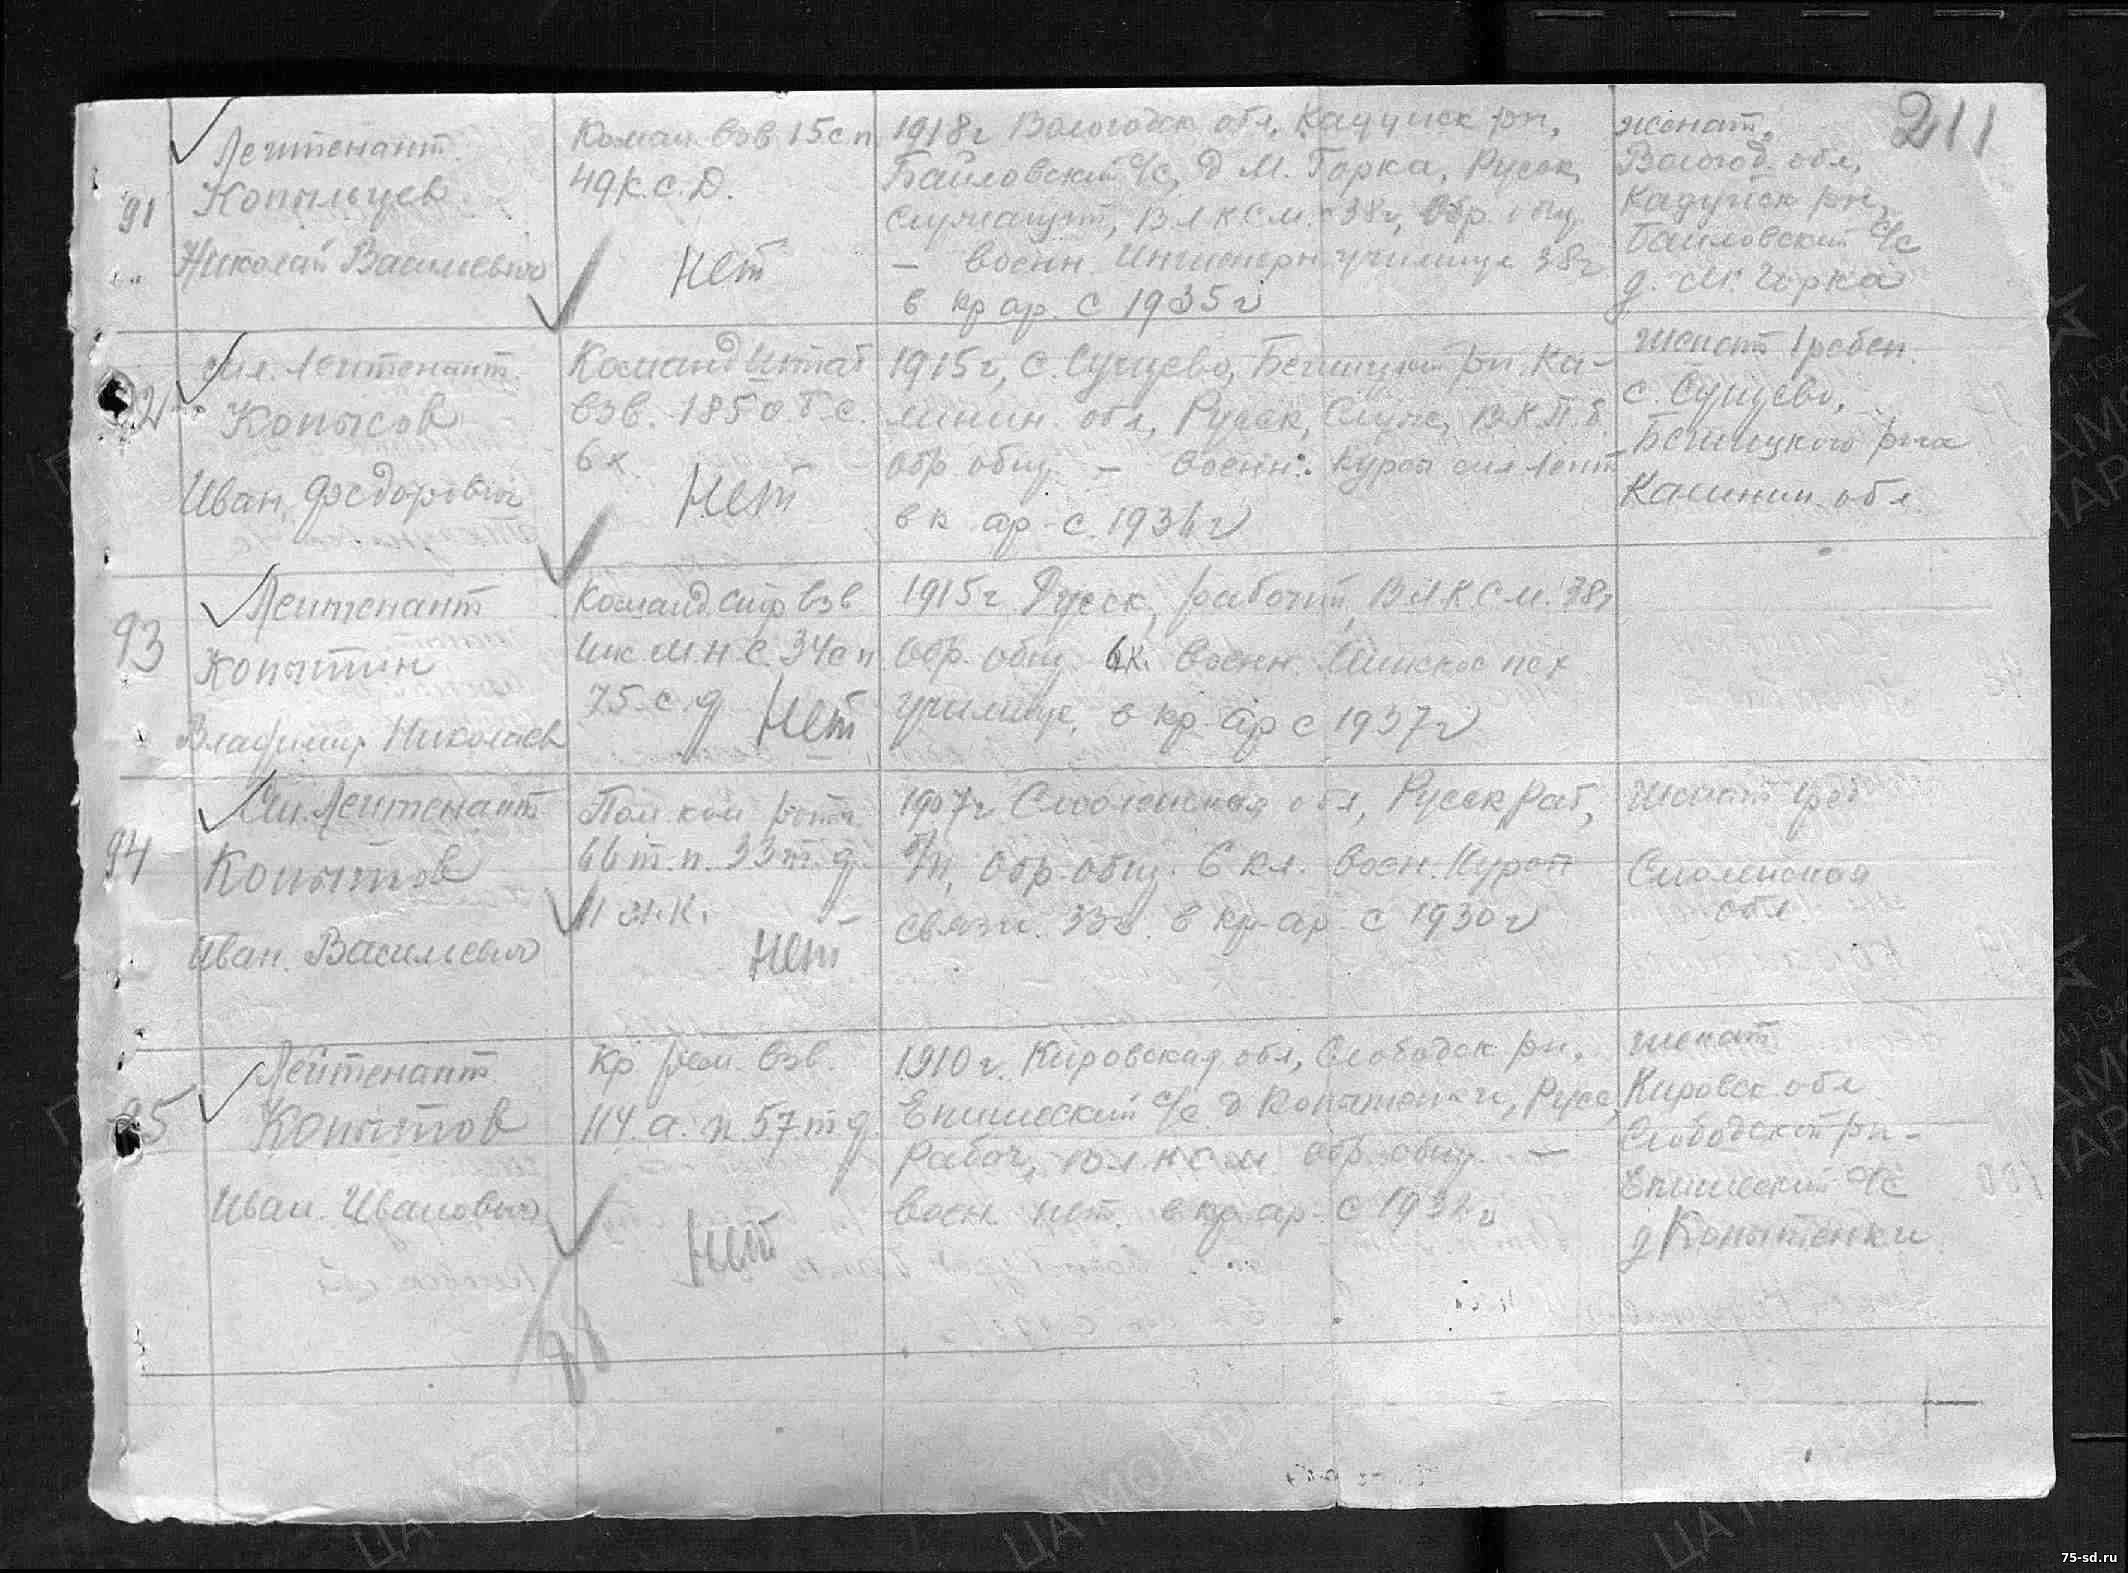 211
91
Лейтенант
Копыльцев
Николай Васильевич
Коман. взв 15 сп
49 К.С.Д.
Нет
1918 г Вологодск обл, Кадуйск рн,
Байловский с/с, д М. Горка, Русск,
Служащий, ВЛКСМ с 38 г, Обр. общ
– военн. Инженерн училище 38 г
в кр ар. с 1935 г
женат,
Вологод. обл,
Кадуйск рн,
Байловский с/с
д. М. Горка
92
мл. Лейтенант
Копысов
Иван Федорович
Команд штаб
взв. 185 о.б с.
6 к.
Нет
1915 г, с. Сущево, Бежицкий рн, Ка-
линин. обл, Русск, Служ, ВКПб
обр. общ – военн. Курсы мл лейт
в к. ар. с. 1936 г
женат 1 ребен.
с. Сущево,
Бежицкого р-на
Калинин. обл
93
Лейтенант
Копытин
Владимир Николаев
Команд. стр взв
шк м н с. 34 сп
75 с.д
Нет
1915 г Русск, рабочий, ВЛКСМ. 38 г
обр. общ 6 к. военн. Минское пех
училище, в кр. ар с 1937 г
94
Мл. Лейтенант
Копытов
Иван Васильевич
Пом. ком роты
66 т.п. 33 т.д.
11 м.к.
Нет
1907 г Смоленская обл, Русск, раб,
б/п, Обр. общ. 6 кл. воен. Курсы
связи. 33 г. в кр-ар. с 1930 г
женат 1 реб
Смоленская
обл.
95
Лейтенант
Копытов
Иван Иванович
Кр рем. взв.
114 а. п 57 т д.
Нет
1910 г. Кировская обл, Слободск рн,
с/с д Копытенки, Русс,
рабоч, ВЛКСМ обр. общ –
воен. нет. в кр ар. с 1932 г
женат
Кировск обл
Слободской рн-
с/с
д Копытенки
ЦАМО РФ
75-sd.ru